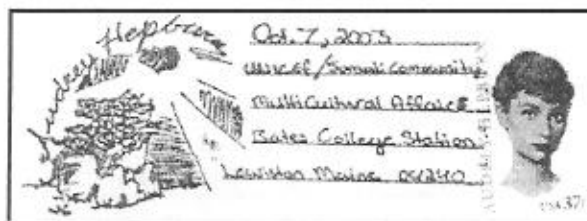 Audrey Hepburn
Oct. 7, 2003
Unicef/Somali Community
MultiCultural Affairs
Bates College Station
Lewiston Maine 04240
USA 37